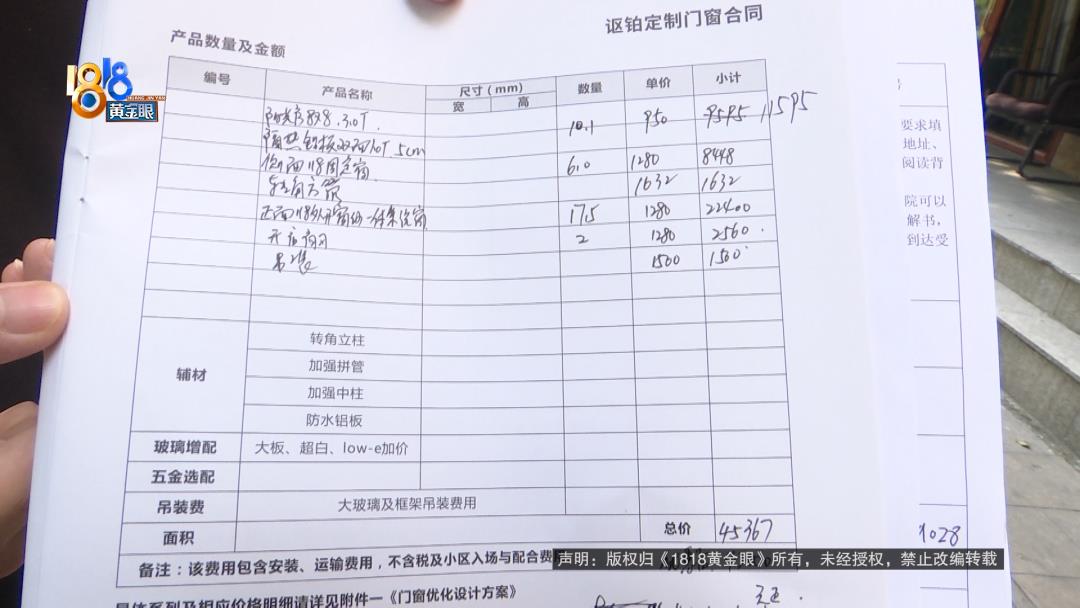 讴铂定制门窗合同
产品数量及金额
1818
黄金眼
编号 产品名称 尺寸(mm) 数量 单价 小计
宽 高
10.1 950 9595 11595
5cm
6.0 1280 8448
1632 1632
17.5 1280 22400
2 1280 2560
吊装 1500 1500
辅材
转角立柱
加强拼管
加强中柱
防水铝板
玻璃增配 大板、超白、low-e加价
五金选配
吊装费 大玻璃及框架吊装费用
面积 总价 45367
备注：该费用包含安装、运输费用，不含税及小区入场与配合费
具体系列及相应价格明细请详见附件一《门窗优化设计方案》
要求填
地址、
阅读背
院可以
解书，
到达受
1028
声明：版权归《1818黄金眼》所有，未经授权，禁止改编转载